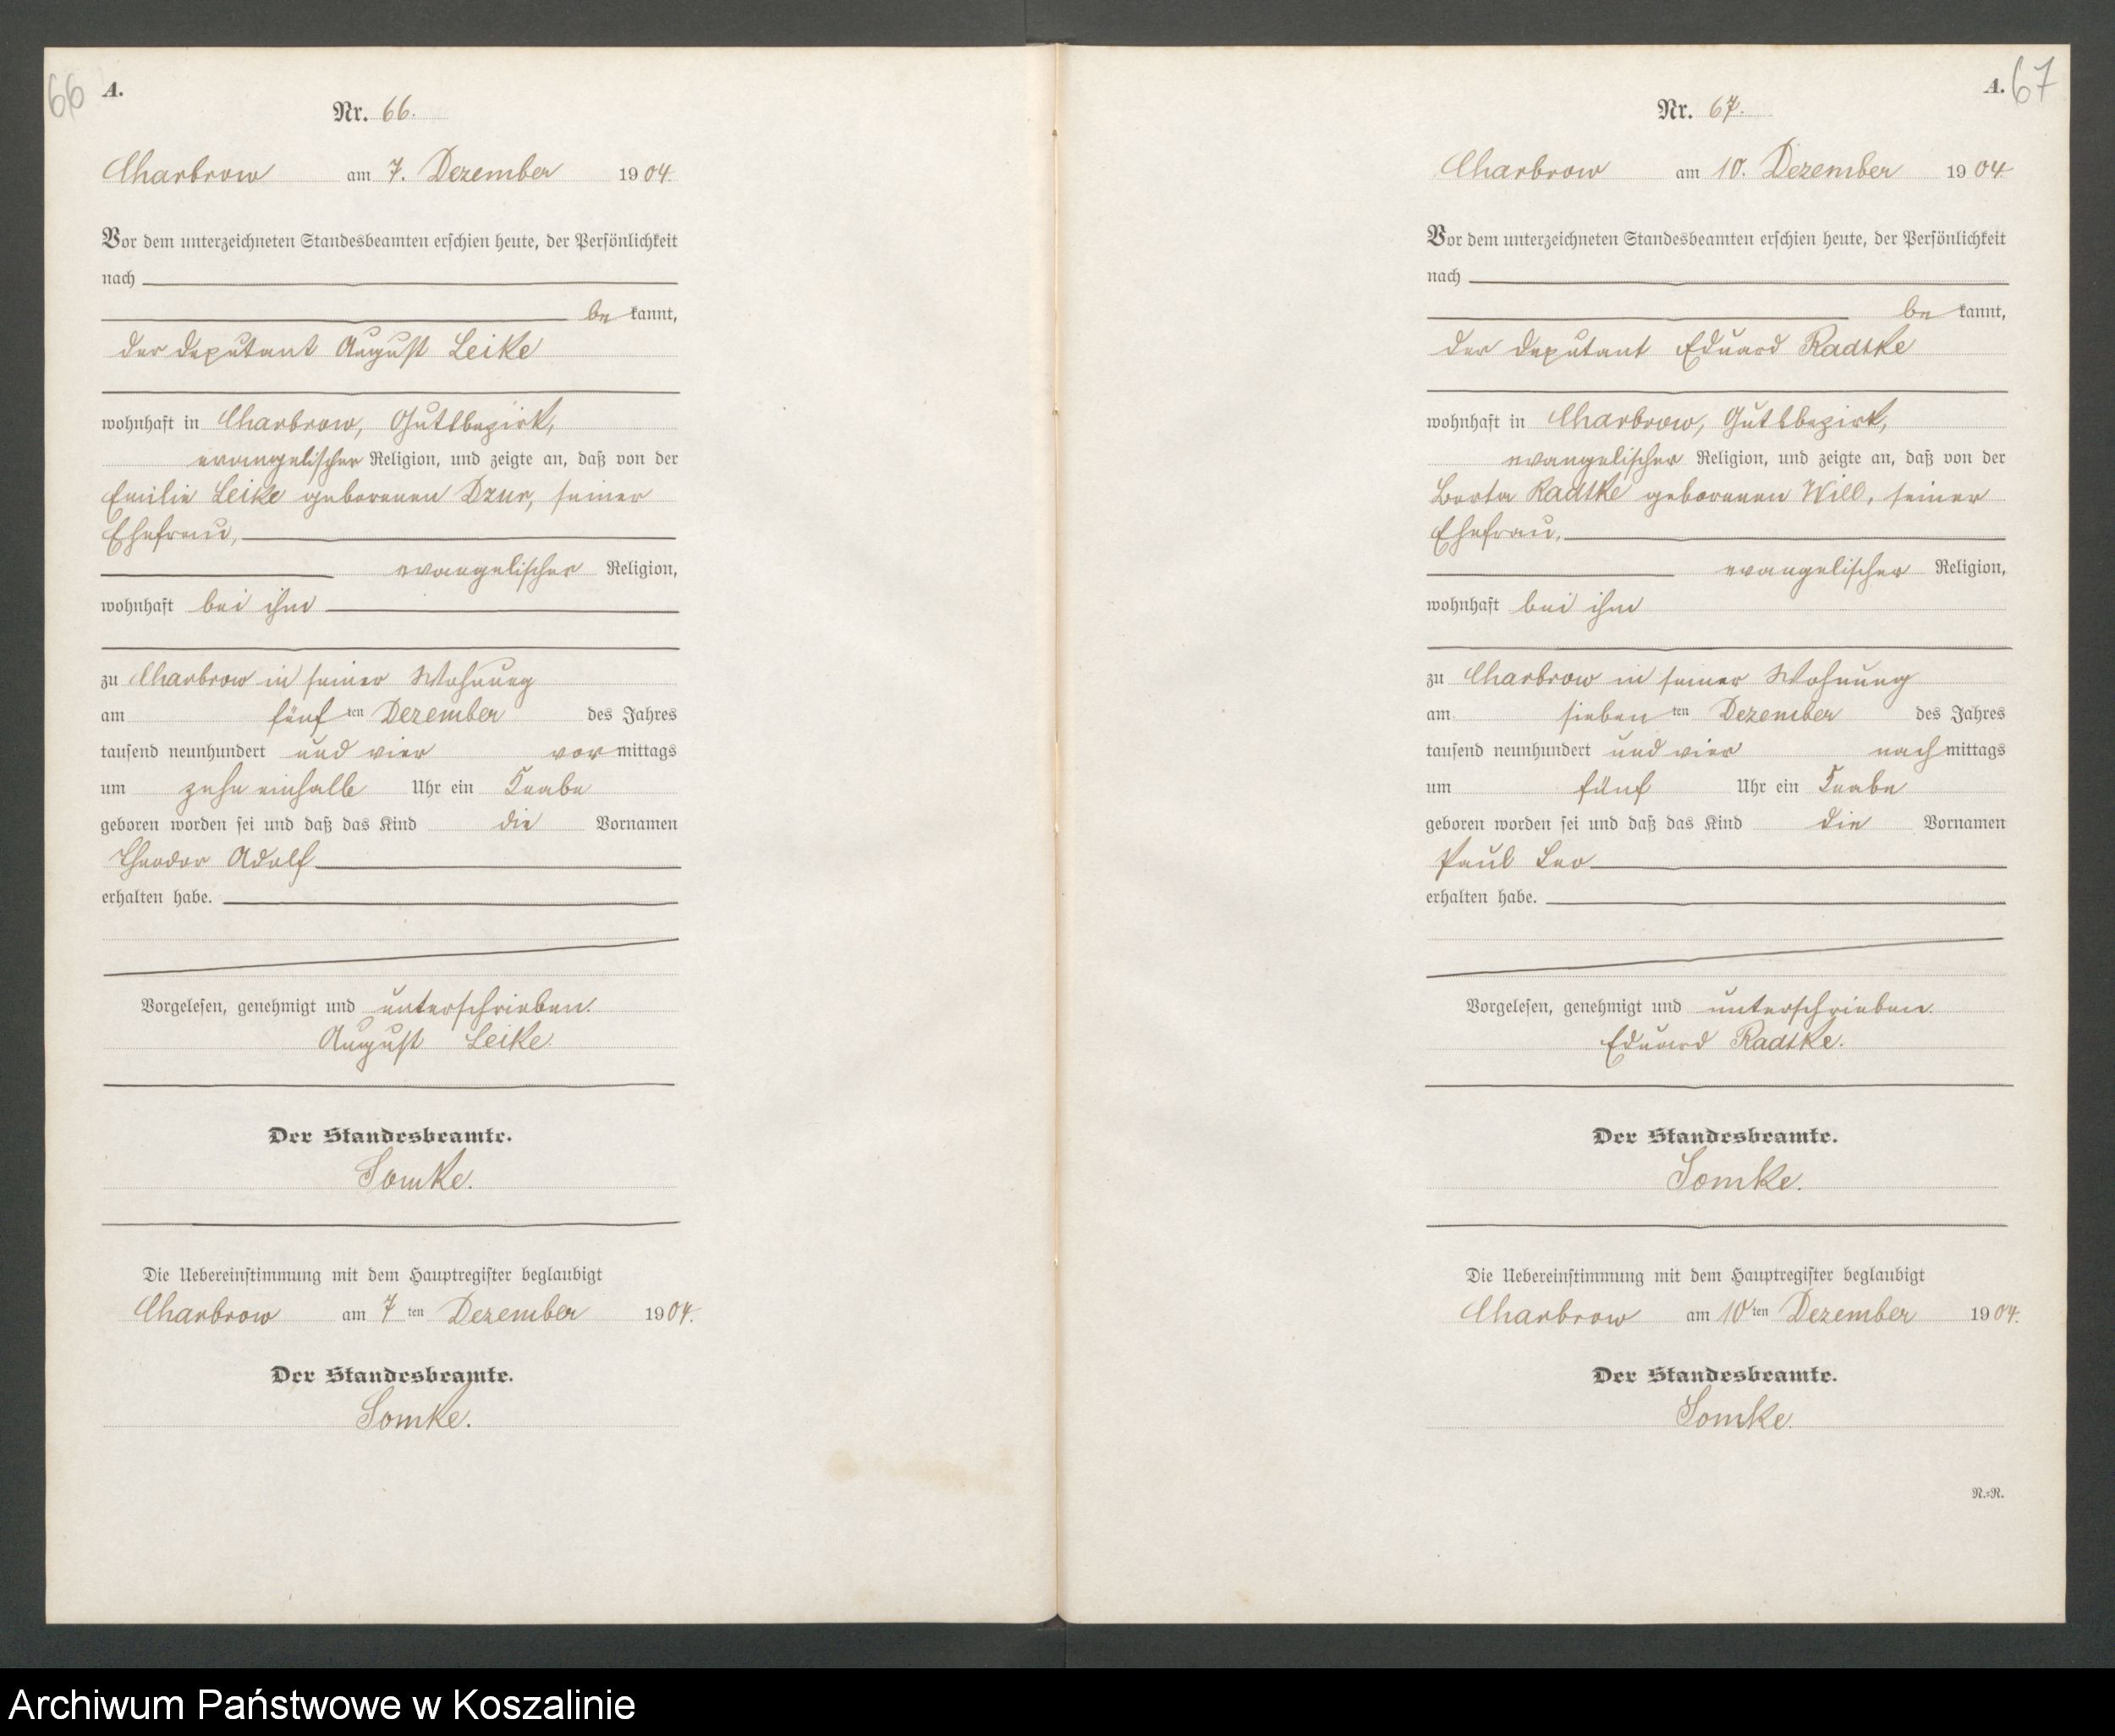 66
A.
Nr. 66.
Charbrow am 7. Dezember 1904.
Vor dem unterzeichneten Standesbeamten erschien heute, der Persönlichkeit
nach
be kannt,
der Deputant August Leike
wohnhaft in Charbrow, Gutsbezirk,
evangelischer Religion, und zeigte an, daß von der
Emilie Leike geborenen Dzur, seiner
Ehefrau,
evangelischer Religion,
wohnhaft bei ihm
zu Charbrow in seiner Wohnung
am fünf ten Dezember des Jahres
tausend neunhundert und vier vor mittags
um zehn einhalb Uhr ein Knabe
geboren worden sei und daß das Kind die Vornamen
Theodor Adolf
erhalten habe.
Vorgelesen, genehmigt und unterschrieben.
August Leike.
Der Standesbeamte.
Somke.
Die Uebereinstimmung mit dem Hauptregister beglaubigt
Charbrow am 7 ten Dezember 1904.
Der Standesbeamte.
Somke.
A. 67
Nr. 67.
Charbrow am 10. Dezember 1904
Vor dem unterzeichneten Standesbeamten erschien heute, der Persönlichkeit
nach
be kannt,
der Deputant Eduard Radtke
wohnhaft in Charbrow, Gutsbezirk,
evangelischer Religion, und zeigte an, daß von der
Berta Radtke geborenen Will, seiner
Ehefrau,
evangelischer Religion,
wohnhaft bei ihm
zu Charbrow in seiner Wohnung
am sieben ten Dezember des Jahres
tausend neunhundert und vier nach mittags
um fünf Uhr ein Knabe
geboren worden sei und daß das Kind die Vornamen
Paul Leo
erhalten habe.
Vorgelesen, genehmigt und unterschrieben.
Eduard Radtke.
Der Standesbeamte.
Somke.
Die Uebereinstimmung mit dem Hauptregister beglaubigt
Charbrow am 10 ten Dezember 1904.
Der Standesbeamte.
Somke.
R.=R.
Archiwum Państwowe w Koszalinie